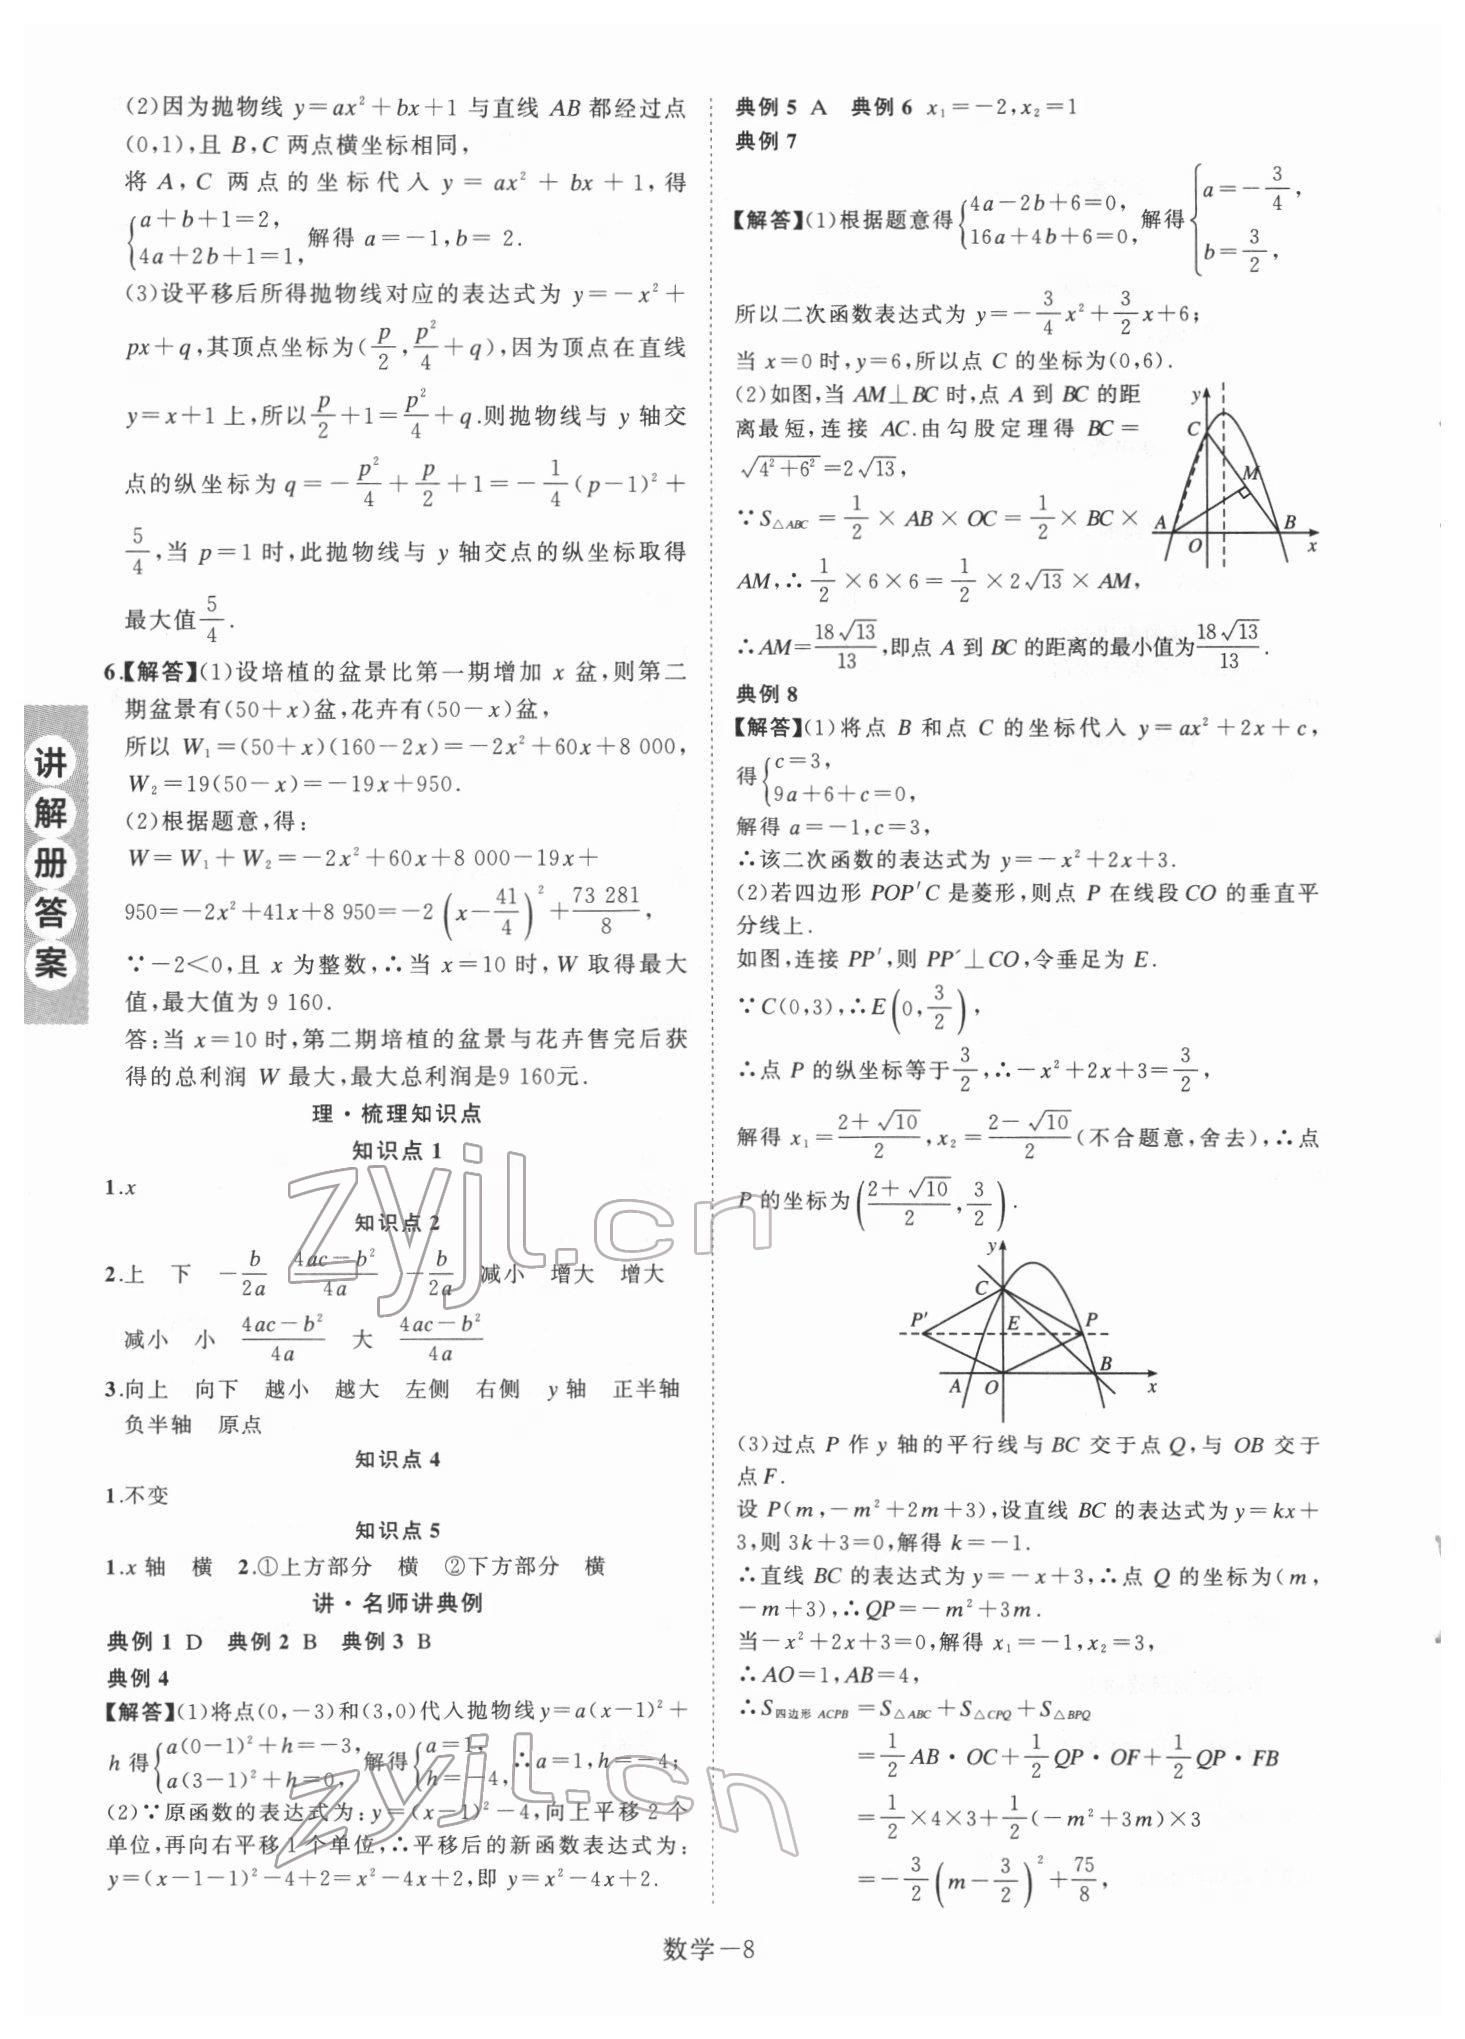 (2)因为抛物线 y=ax²+bx+1 与直线 AB 都经过点
(0,1),且 B,C 两点横坐标相同,
将 A,C 两点的坐标代入 y=ax²+bx+1,得
{a+b+1=2,
4a+2b+1=1, 解得 a=-1,b=2.
(3)设平移后所得抛物线对应的表达式为 y=-x²+
px+q,其顶点坐标为(p/2,p²/4+q),因为顶点在直线
y=x+1 上,所以p/2+1=p²/4+q.则抛物线与 y 轴交
点的纵坐标为 q=-p²/4+p/2+1=-1/4(p-1)²+
5/4,当 p=1 时,此抛物线与 y 轴交点的纵坐标取得
最大值5/4.
6.【解答】(1)设培植的盆景比第一期增加 x 盆,则第二
期盆景有(50+x)盆,花卉有(50-x)盆,
所以 W₁=(50+x)(160-2x)=-2x²+60x+8 000,
W₂=19(50-x)=-19x+950.
(2)根据题意,得:
W=W₁+W₂=-2x²+60x+8 000-19x+
950=-2x²+41x+8 950=-2(x-41/4)²+73 281/8,
∵-2<0,且 x 为整数,∴当 x=10 时,W 取得最大
值,最大值为 9 160.
答:当 x=10 时,第二期培植的盆景与花卉售完后获
得的总利润 W 最大,最大总利润是9 160元.
理·梳理知识点
知识点 1
1.x
知识点 2
2.上 下 -b/2a (4ac-b²)/4a -b/2a 减小 增大 增大
减小 小 (4ac-b²)/4a 大 (4ac-b²)/4a
3.向上 向下 越小 越大 左侧 右侧 y 轴 正半轴
负半轴 原点
知识点 4
1.不变
知识点 5
1.x 轴 横 2.①上方部分 横 ②下方部分 横
讲·名师讲典例
典例 1 D 典例 2 B 典例 3 B
典例 4
【解答】(1)将点(0,-3)和(3,0)代入抛物线y=a(x-1)²+
h 得{a(0-1)²+h=-3,
a(3-1)²+h=0, 解得{a=1,
h=-4, ∴a=1,h=-4;
(2)∵原函数的表达式为:y=(x-1)²-4,向上平移 2 个
单位,再向右平移 1 个单位,∴平移后的新函数表达式为:
y=(x-1-1)²-4+2=x²-4x+2,即 y=x²-4x+2.
典例 5 A 典例 6 x₁=-2,x₂=1
典例 7
【解答】(1)根据题意得{4a-2b+6=0,
16a+4b+6=0, 解得{a=-3/4,
b=3/2,
所以二次函数表达式为 y=-3/4x²+3/2x+6;
当 x=0 时,y=6,所以点 C 的坐标为(0,6).
(2)如图,当 AM⊥BC 时,点 A 到 BC 的距
离最短,连接 AC.由勾股定理得 BC=
√(4²+6²)=2√13,
∵S△ABC=1/2×AB×OC=1/2×BC×
AM,∴1/2×6×6=1/2×2√13×AM,
∴AM=18√13/13,即点 A 到 BC 的距离的最小值为18√13/13.
y
C
M
A
B
O
x
典例 8
【解答】(1)将点 B 和点 C 的坐标代入 y=ax²+2x+c,
得{c=3,
9a+6+c=0,
解得 a=-1,c=3,
∴该二次函数的表达式为 y=-x²+2x+3.
(2)若四边形 POP′C 是菱形,则点 P 在线段 CO 的垂直平
分线上.
如图,连接 PP′,则 PP′⊥CO,令垂足为 E.
∵C(0,3),∴E(0,3/2),
∴点 P 的纵坐标等于3/2,∴-x²+2x+3=3/2,
解得 x₁=(2+√10)/2,x₂=(2-√10)/2(不合题意,舍去),∴点
P 的坐标为((2+√10)/2,3/2).
y
C
P′
E
P
B
A
O
x
(3)过点 P 作 y 轴的平行线与 BC 交于点 Q,与 OB 交于
点 F.
设 P(m,-m²+2m+3),设直线 BC 的表达式为 y=kx+
3,则 3k+3=0,解得 k=-1.
∴直线 BC 的表达式为 y=-x+3,∴点 Q 的坐标为(m,
-m+3),∴QP=-m²+3m.
当-x²+2x+3=0,解得 x₁=-1,x₂=3,
∴AO=1,AB=4,
∴S四边形 ACPB=S△ABC+S△CPQ+S△BPQ
=1/2AB·OC+1/2QP·OF+1/2QP·FB
=1/2×4×3+1/2(-m²+3m)×3
=-3/2(m-3/2)²+75/8,
讲解册答案
数学-8
zyjl.cn
zyjl.cn